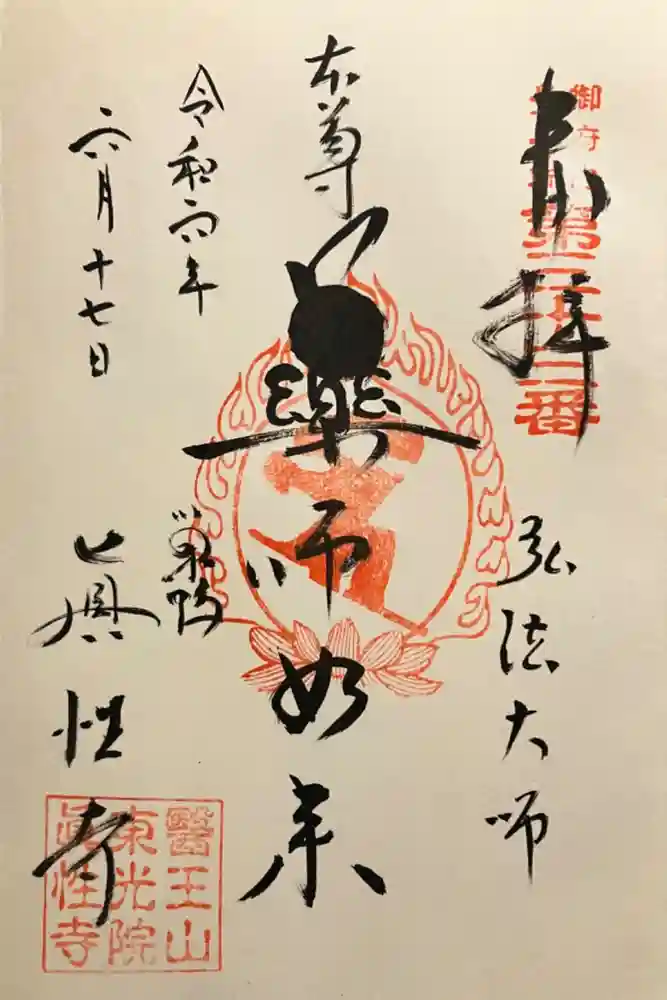 奉拝
弘法大師
本尊
薬師如来
令和六年
六月十七日
巣鴨
眞性寺
御府内
第三十三番
醫王山
東光院
眞性寺